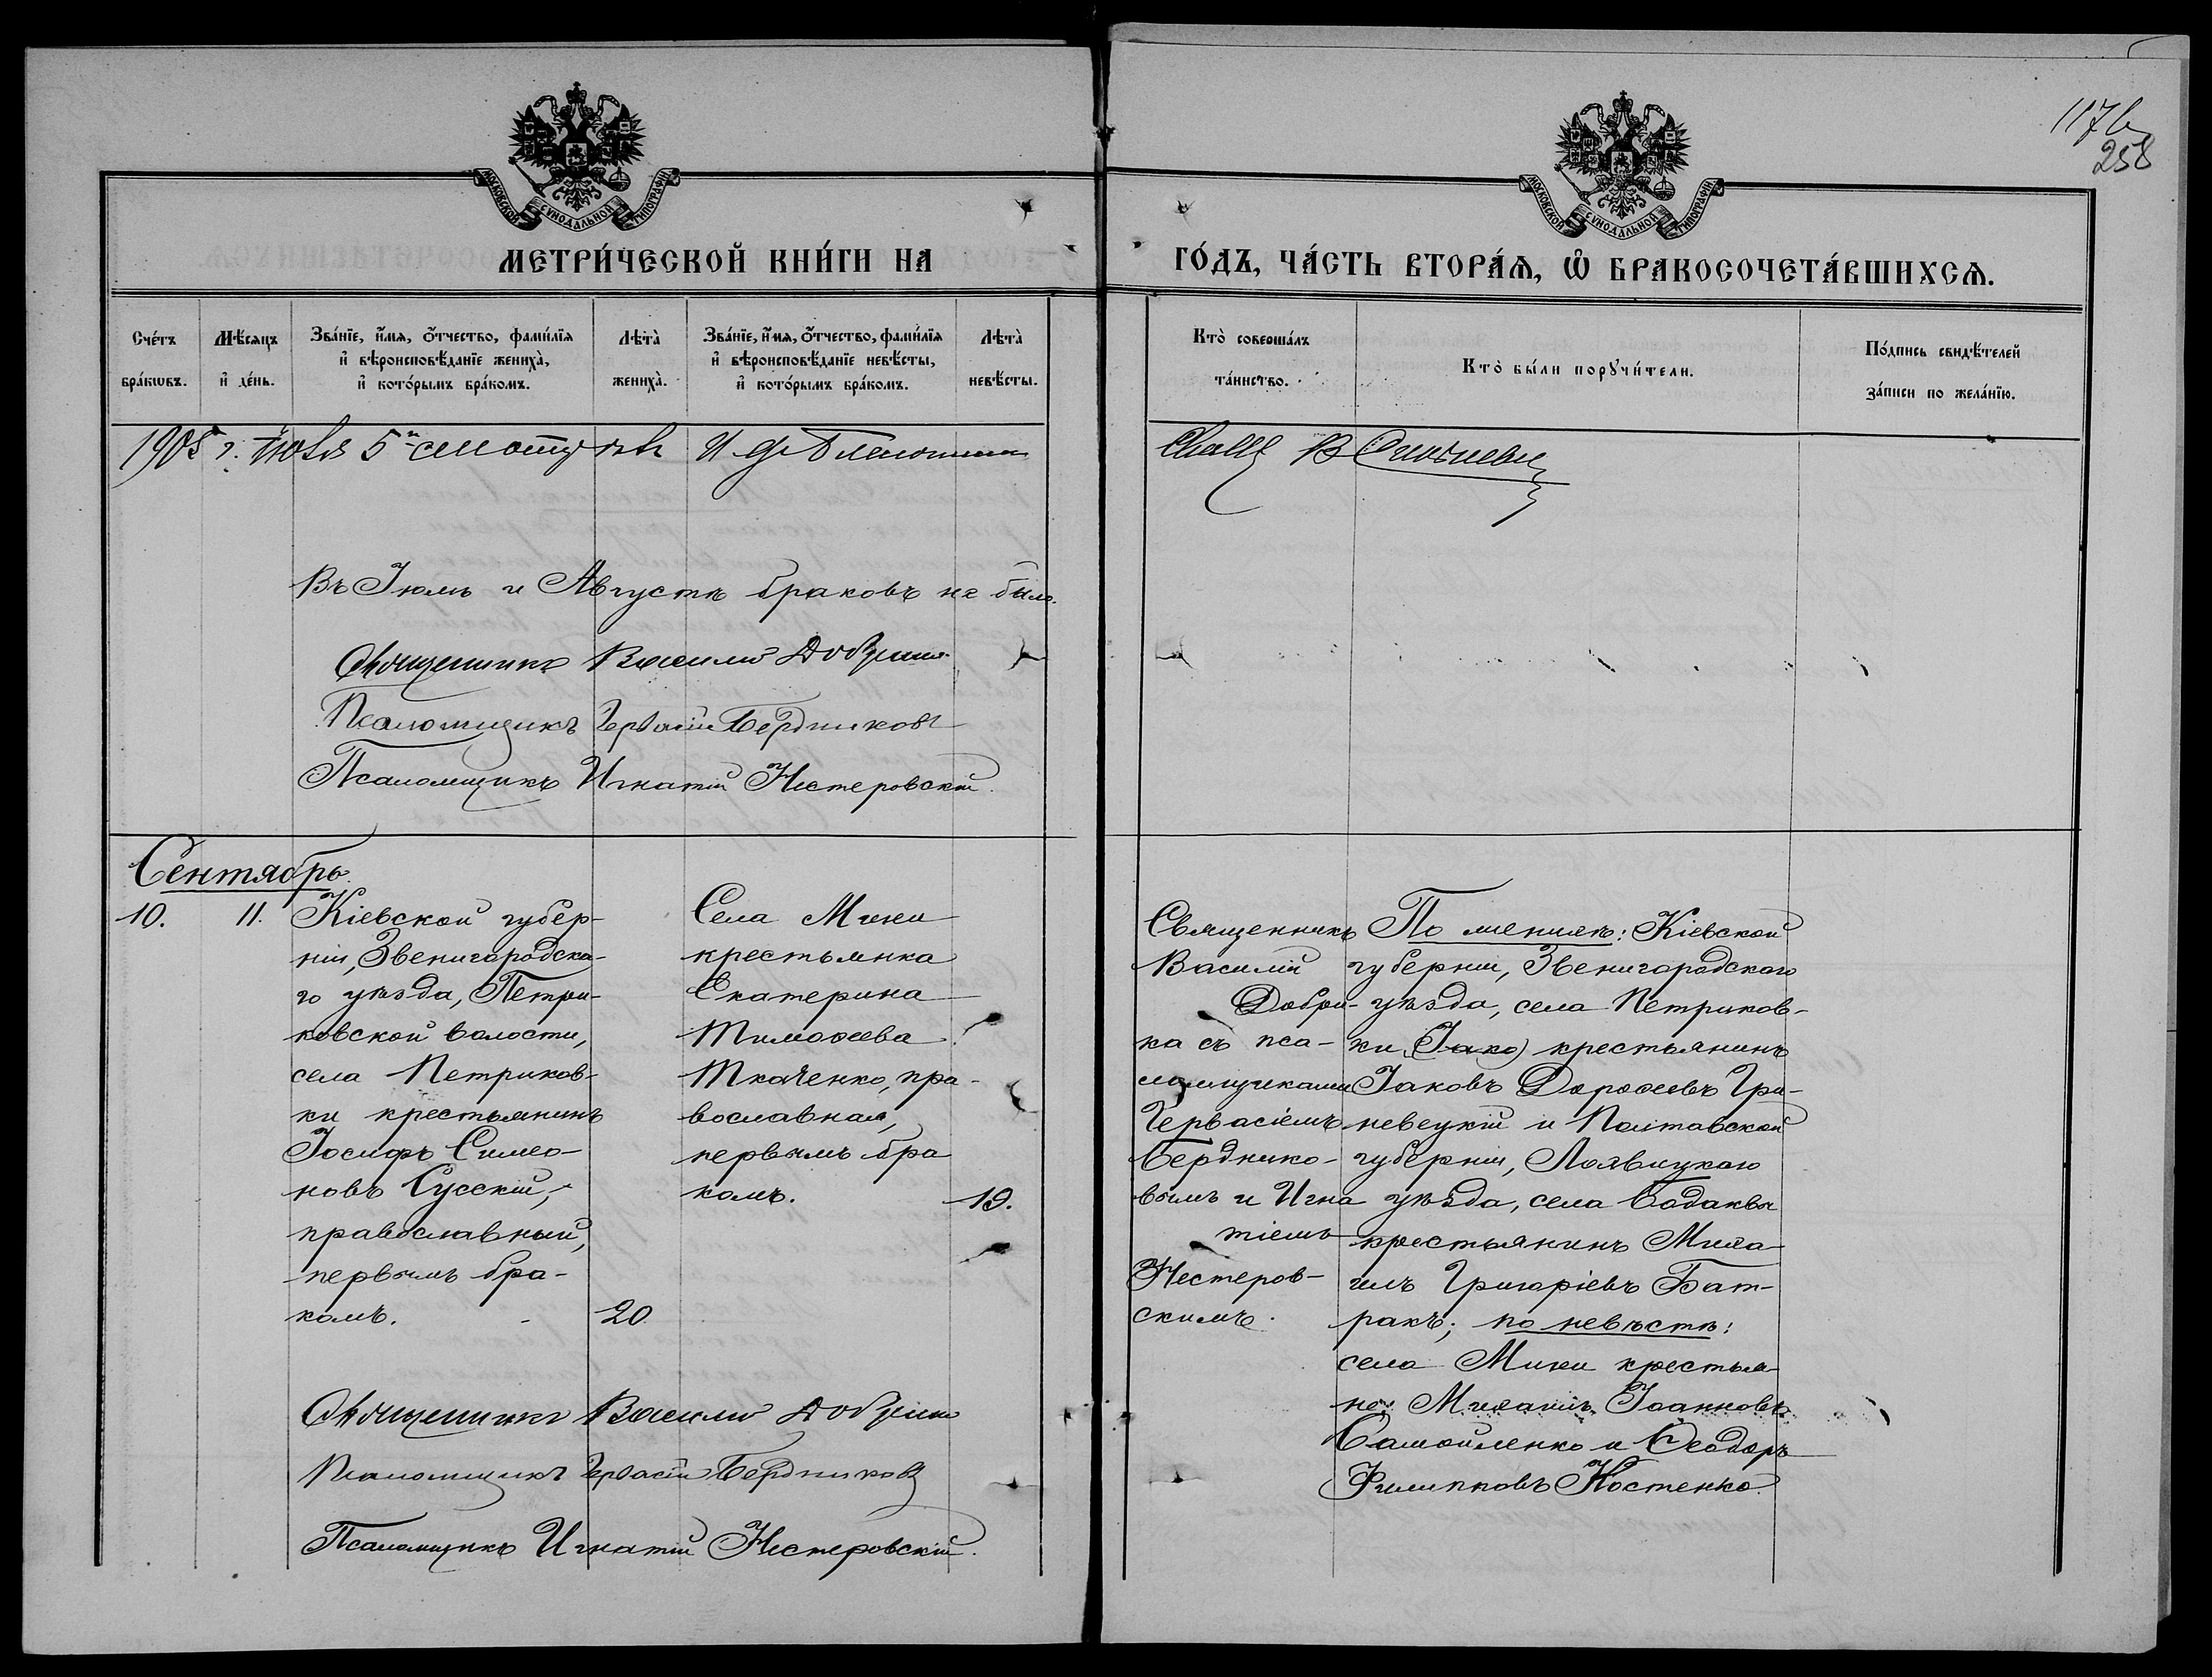 117 б
258
МОСКОВСКОЙ СѴНОДАЛЬНОЙ ТИПОГРАФІИ
МОСКОВСКОЙ СѴНОДАЛЬНОЙ ТИПОГРАФІИ
МЕТРИ́ЧЕСКОЙ КНИ́ГИ НА
ГО́ДЪ, ЧА́СТЬ ВТОРА́Ѧ, Ѡ БРАКОСОЧЕТА́ВШИХСѦ.
Сче́тъ
бра́кѡвъ.
Мѣ́сяцъ
и де́нь.
Зва́нїе, и́мя, ѻ́тчество, фами́лїя
и҆ вѣроисповѣ́данїе жениха̀,
и҆ кото́рымъ бра́комъ.
Лѣта̀
жениха̀.
Зва́нїе, и́мя, ѻ́тчество, фами́лїя
и҆ вѣроисповѣ́данїе невѣ́сты,
и҆ кото́рымъ бра́комъ.
Лѣта̀
невѣ́сты.
Кто̀ соверша́лъ
та́инство.
Кто̀ бы́ли порꙋчи́тели.
По́дпись свидѣ́телей
за́писи по жела́нїю.
1905 г. Іюля 5
Въ Іюлѣ и Августѣ браковъ не было.
Священникъ Василій Добрика
Псаломщикъ Гервасій Бердниковъ
Псаломщикъ Игнатій Нестеровскій.
Сентябрь.
10.
11.
Кіевской губер-
ніи, Звенигородска-
го уѣзда, Петри-
ковской волости,
села Петриков-
ки крестьянинъ
Іосифъ Симео-
новъ Сусскій,
православный,
первымъ бра-
комъ.
20
Села Мики
крестьянка
Екатерина
Тимоѳеева
Ткаченко, пра-
вославная,
первымъ бра
комъ.
19.
Священникъ
Василій
Добри-
ка съ пса-
ломщиками
Гервасіемъ
Берднико-
вымъ и Игна
тіемъ
Нестеров-
скимъ.
По женихѣ: Кіевской
губерніи, Звенигородскаго
уѣзда, села Петриков-
ки (Іако) крестьянинъ
Іаковъ Дороѳеевъ Гри-
невецкій и Полтавской
губерніи, Лохвицкаго
уѣзда, села Бодаквы
крестьянинъ Миха-
илъ Григоріевъ Бат-
ракъ; по невѣстѣ:
села Мики крестья-
не: Михаилъ Іоанновъ
Самойленко и Ѳеодоръ
Филипповъ Костенко.
Священникъ Василій Добрика
Псаломщикъ Гервасій Бердниковъ
Псаломщикъ Игнатій Нестеровскій.